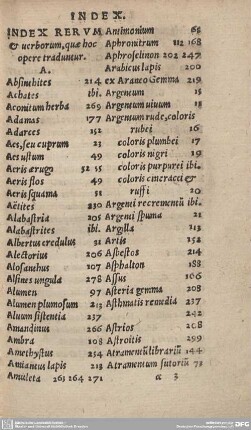 INDEX.
INDEX RERVM
& uerborum, quæ hoc
opere traduntur.
A.
Absinthites 214
Achates ibi.
Aconitum herba 269
Adamas 177
Adarces 152
Aes, seu cuprum 23
Aes ustum 49
Aeris ærugo 52 55
Aeris flos 49
Aeris squama 51
Aëtites 230
Alabastria 205
Alabastrites ibi.
Albertus credulus 31
Alectorius 206
Alosanthus 107
Alsines ungula 278
Alumen 97
Alumen plumosum 213
Aluum sistentia 237
Amandinus 266
Ambra 108
Amethystus 254
Amiantus lapis 213
Amuleta 263 264 271
Antimonium 65
Aphronitrum 112 168
Aphroselinon 202 247
Arabicus lapis 200
ex Araneo Gemma 219
Argentum 15
Argentum uiuum 18
Argentum rude, coloris
rubei 16
coloris plumbei 17
coloris nigri 19
coloris purpurei ibi.
coloris cineracei &
ruffi 20
Argenti recrementũ ibi.
Argenti spuma 21
Argilla 113
Artis 152
Asbestos 214
Asphalton 188
Assus 106
Asteria gemma 208
Asthmatis remedia 237
242
Astrios 208
Astroitis 299
Atramentũ librariũ 144
Atramentum sutoriũ 71
α 3